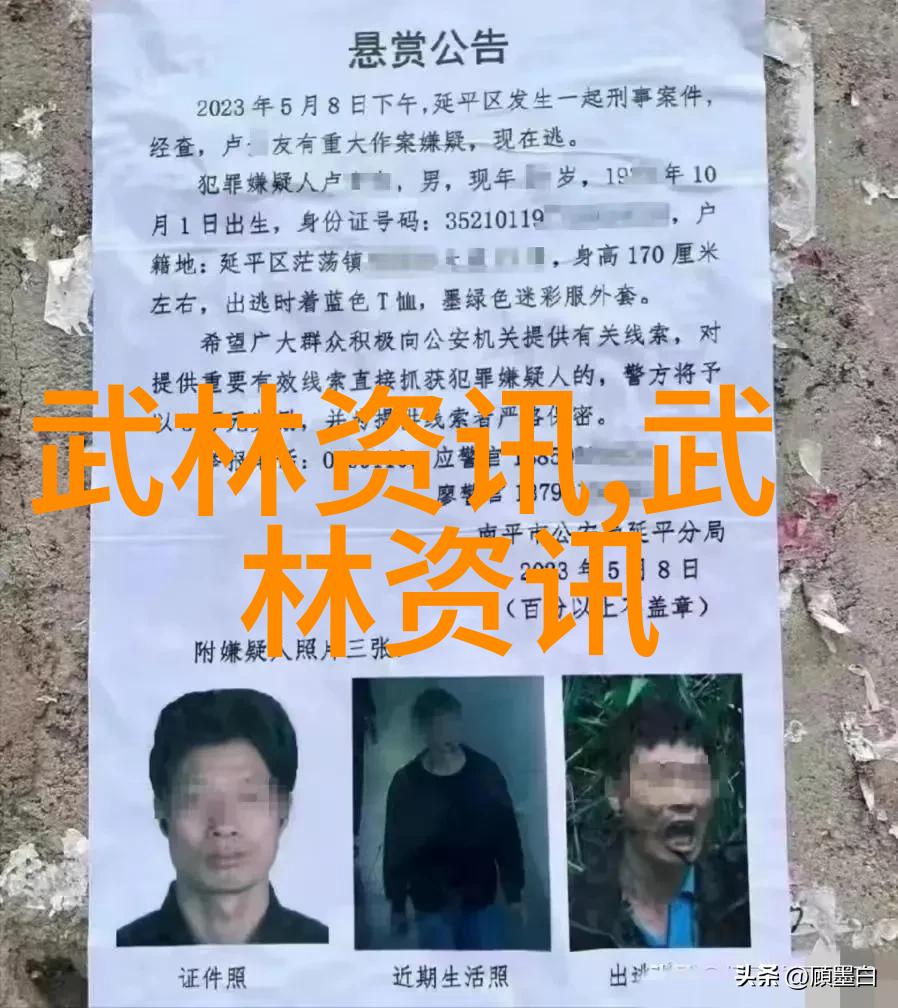 悬赏公告
2023年5月8日下午,延平区发生一起刑事案件,
经查,卢 友有重大作案嫌疑,现在逃。
犯罪嫌疑人卢 ,男,现年 岁,19 年10
月1日出生,身份证号码:35210119 ,户
籍地:延平区茫荡镇 ,身高170厘米
左右,出逃时着蓝色T恤,墨绿色迷彩服外套。
希望广大群众积极向公安机关提供有关线索,对
提供重要有效线索直接抓获犯罪嫌疑人的,警方将予
以 元 ,并 提供线索者严格保密。
武林资讯,武
林资讯
应警官
廖警官
南平市公安 延平分局
2023年5月8日
(百份以上不盖章)
附嫌疑人照片三张
证件照
近期生活照
出逃
头条 @顾墨白